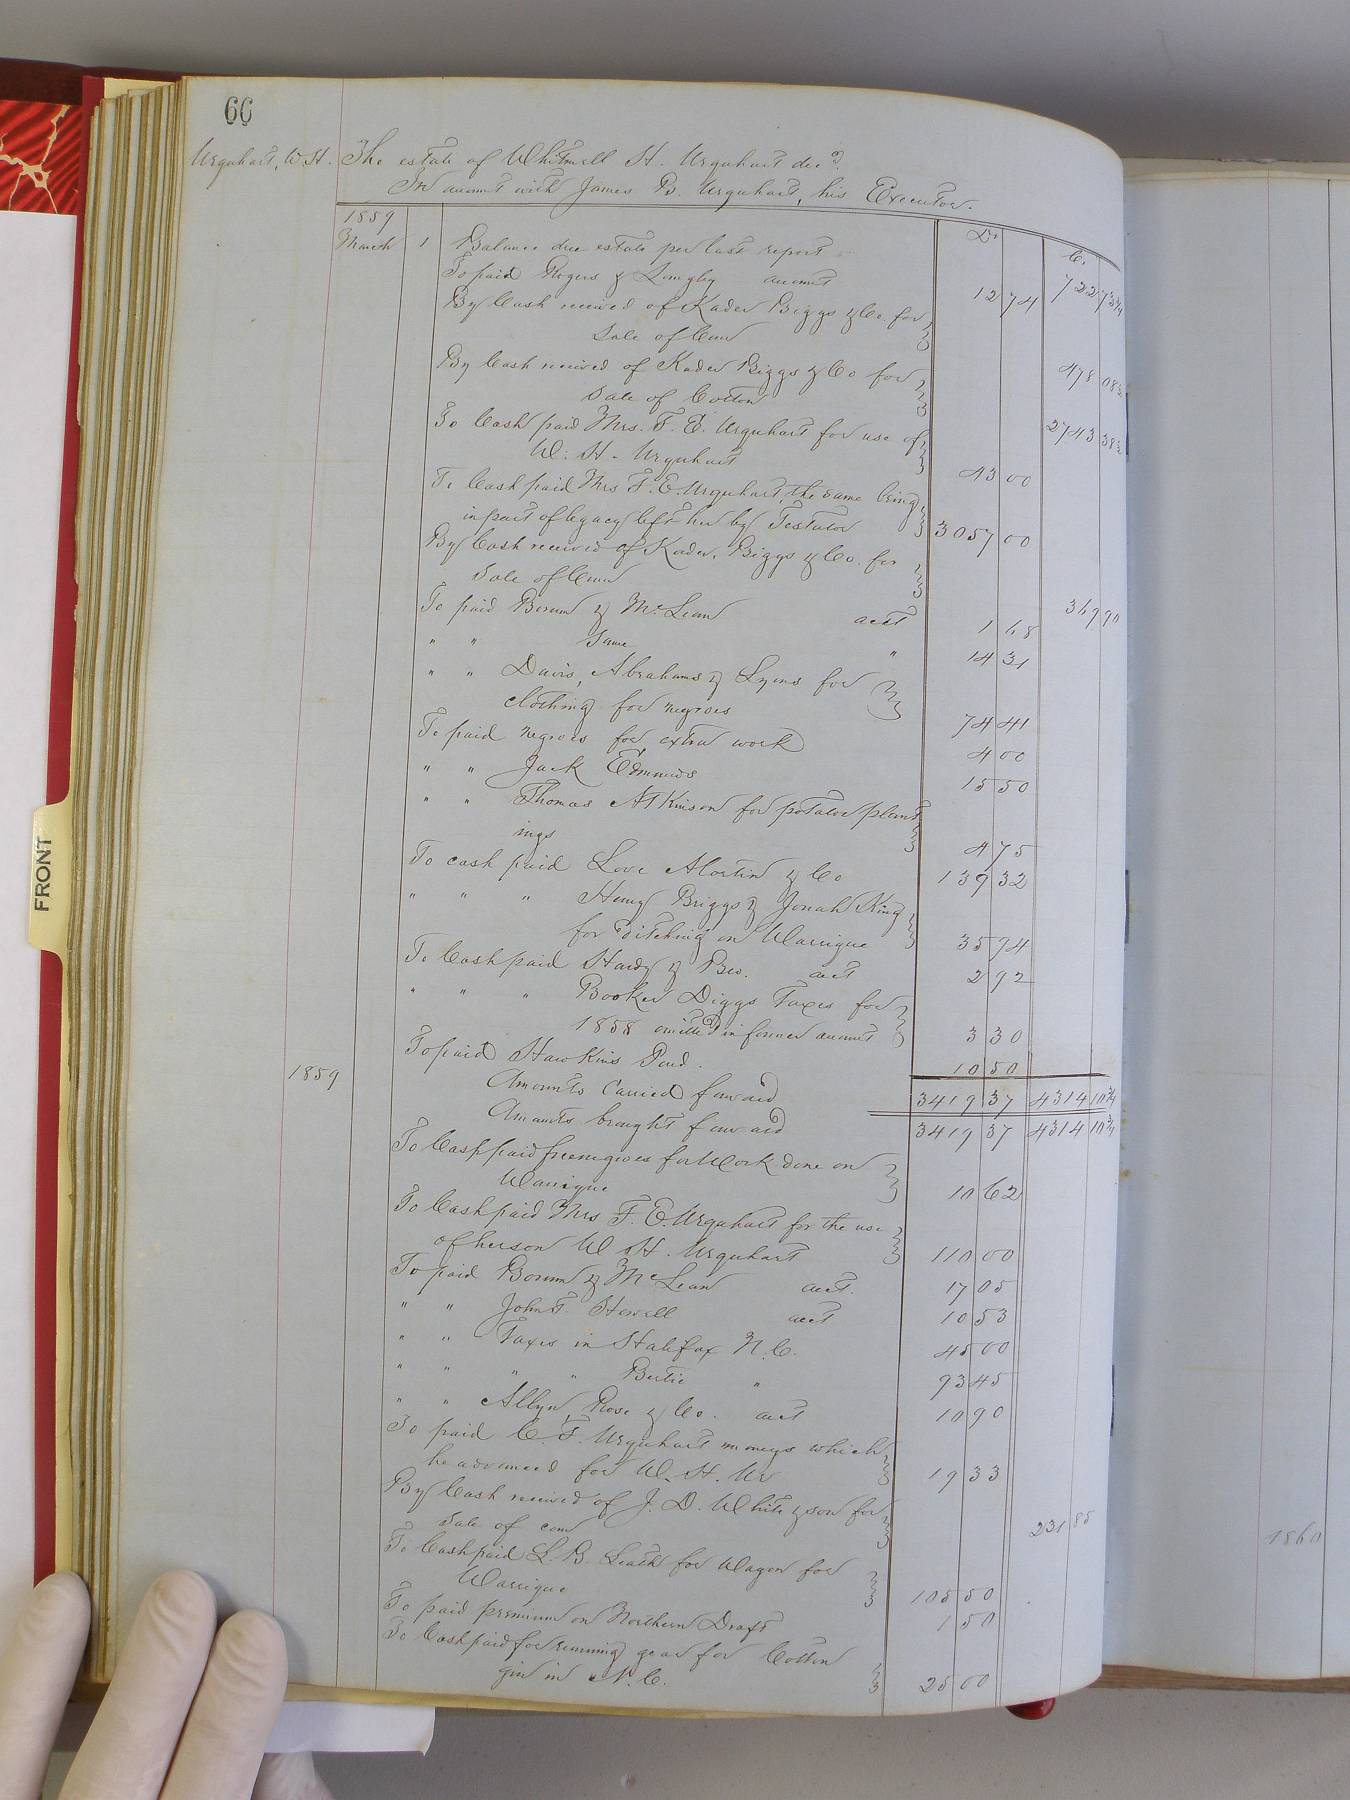 66
Urquhart, W. H. The estate of Whitmell H. Urquhart decd
In account with James B. Urquhart, his Executor.
1859 Dr. Cr.
March 1 Balance due estate per last report 722 73¾
To paid Rogers & Longley account 12 74
By Cash received of Kader Biggs & Co. for
Sale of Corn 478 08½
By Cash received of Kader Biggs & Co for
Sale of Cotton 2743 38½
To Cash paid Mrs. F. E. Urquhart for use of
W. H. Urquhart 43 00
To Cash paid Mrs F. E. Urquhart, the same being
in part of legacy left her by Testator 3057 00
By Cash received of Kader Biggs & Co. for
Sale of Corn 369 90
To paid Borum & McLean acct 1 68
" " Same " 14 31
" " Davis, Abrahams & Lyons for
clothing for negroes 74 41
To paid negroes for extra work 4 00
" " Jack Edmunds 15 50
" " Thomas Atkinson for potatoe plant
ings 4 75
To cash paid Love Martin & Co 139 32
" " " Henry Briggs & Jonah King
for ditching on Warrique 35 94
To Cash paid Hardy & Bro. acct 2 92
" " " Booker Diggs Taxes for
1858 omitted in former account 3 30
To paid Hawkins Pond. 10 50
1859 Amounts Carried forward 3419 37 4314 10¾
Amounts brought forward 3419 37 4314 10¾
To Cash paid free negroes for Work done on
Warrique 10 62
To Cash paid Mrs F. E. Urquhart for the use
of her son W H. Urquhart 110 00
To paid Borum & McLean acct. 17 05
" " John T. Howell acct 10 53
" " Taxes in Halifax N. C. 45 00
" " " " Bertie " 93 45
" " Allyn, Rose & Co. acct 10 90
To paid C. F. Urquhart moneys which
he advanced for W. H. Ur 19 33
By Cash received of J. D. White & son for
Sale of corn 231 85
To Cash paid L. B. Leath for Wagon for
Warrique 105 50
To paid premium on Northern Draft 1 50
To Cash paid for running gear for Cotton
gin in N. C. 25 00
1860
FRONT